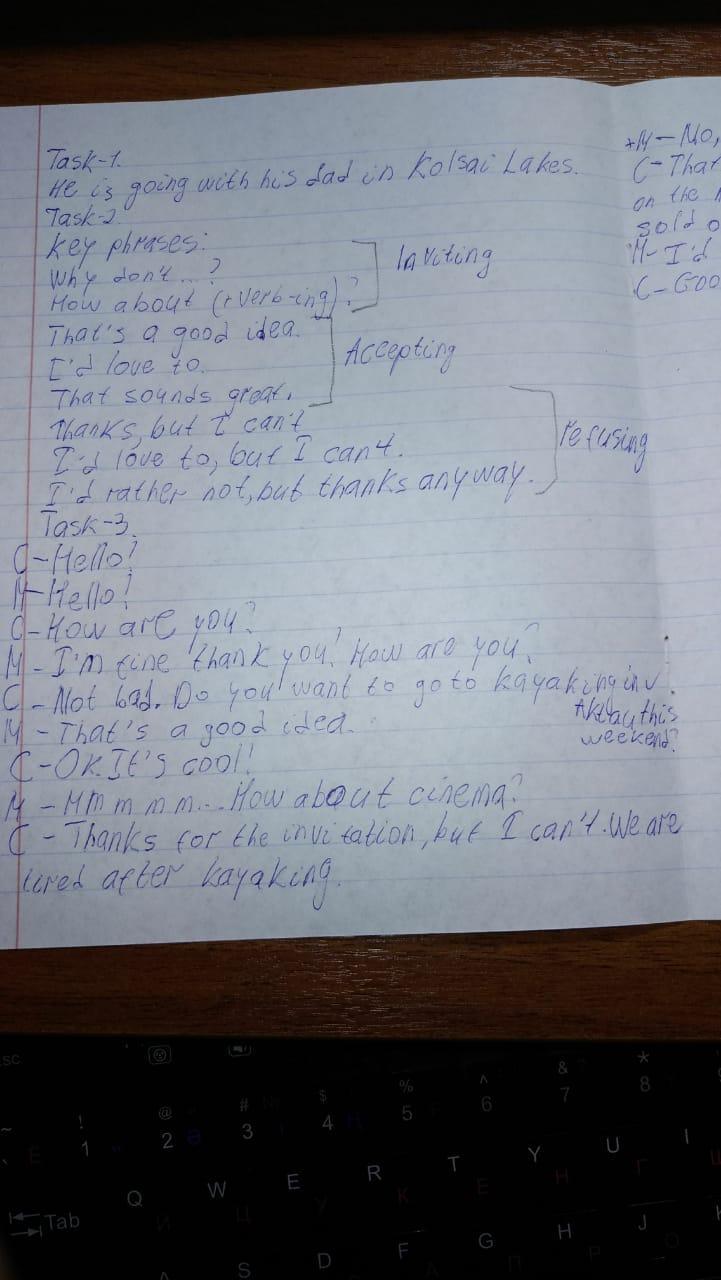 Task-1.
He is going with his dad in Kolsai Lakes.
Task-2
key phrases:
Why don't...?
How about (+verb-ing)?
Inviting
That's a good idea.
I'd love to.
That sounds great.
Accepting
Thanks, but I can't
I'd love to, but I can't.
I'd rather not, but thanks anyway.
refusing
Task-3.
C-Hello!
M-Hello!
C-How are you?
M-I'm fine thank you! How are you?
C-Not bad. Do you want to go to kayaking in
Aktau this
weekend?
M-That's a good idea.
C-OK. It's cool!
M-Mm m m m... How about cinema?
C-Thanks for the invitation, but I can't. We are
tired after kayaking.
+M-No,
C-That
on the
sold o
M-I'd
C-Goo
esc
~ ! @ # $ % ^ & *
` 1 2 3 4 5 6 7 8
Tab Q W E R T Y U I
S D F G H J